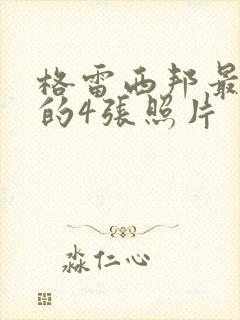 格雷西邦最
的4張照片
淼仁心